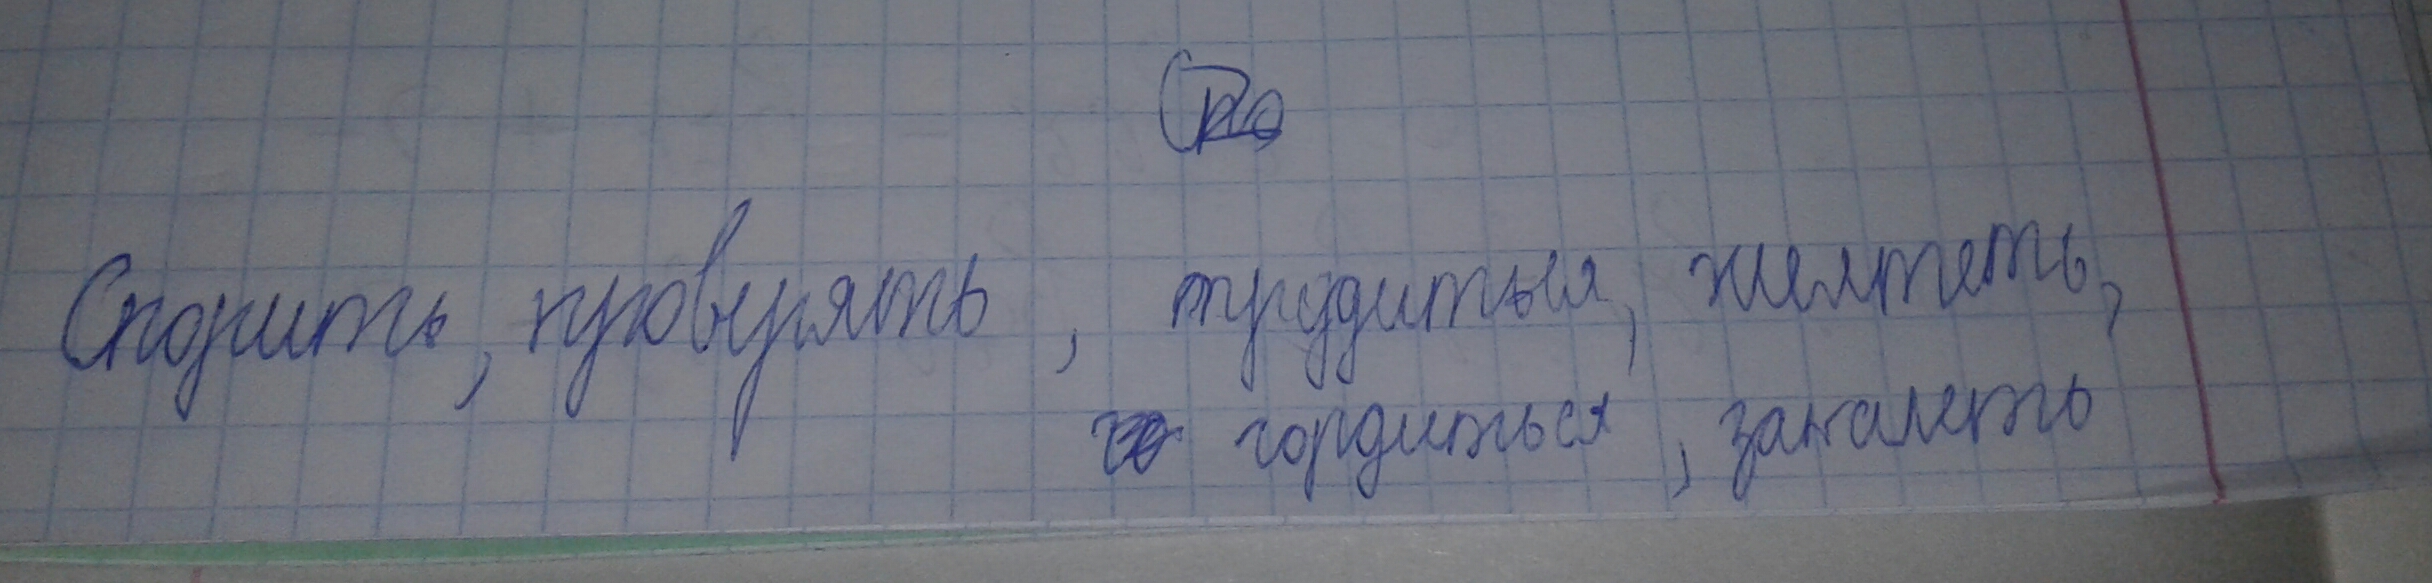 Спорить, проверять, трудиться, желтеть,
гордиться, закалеть